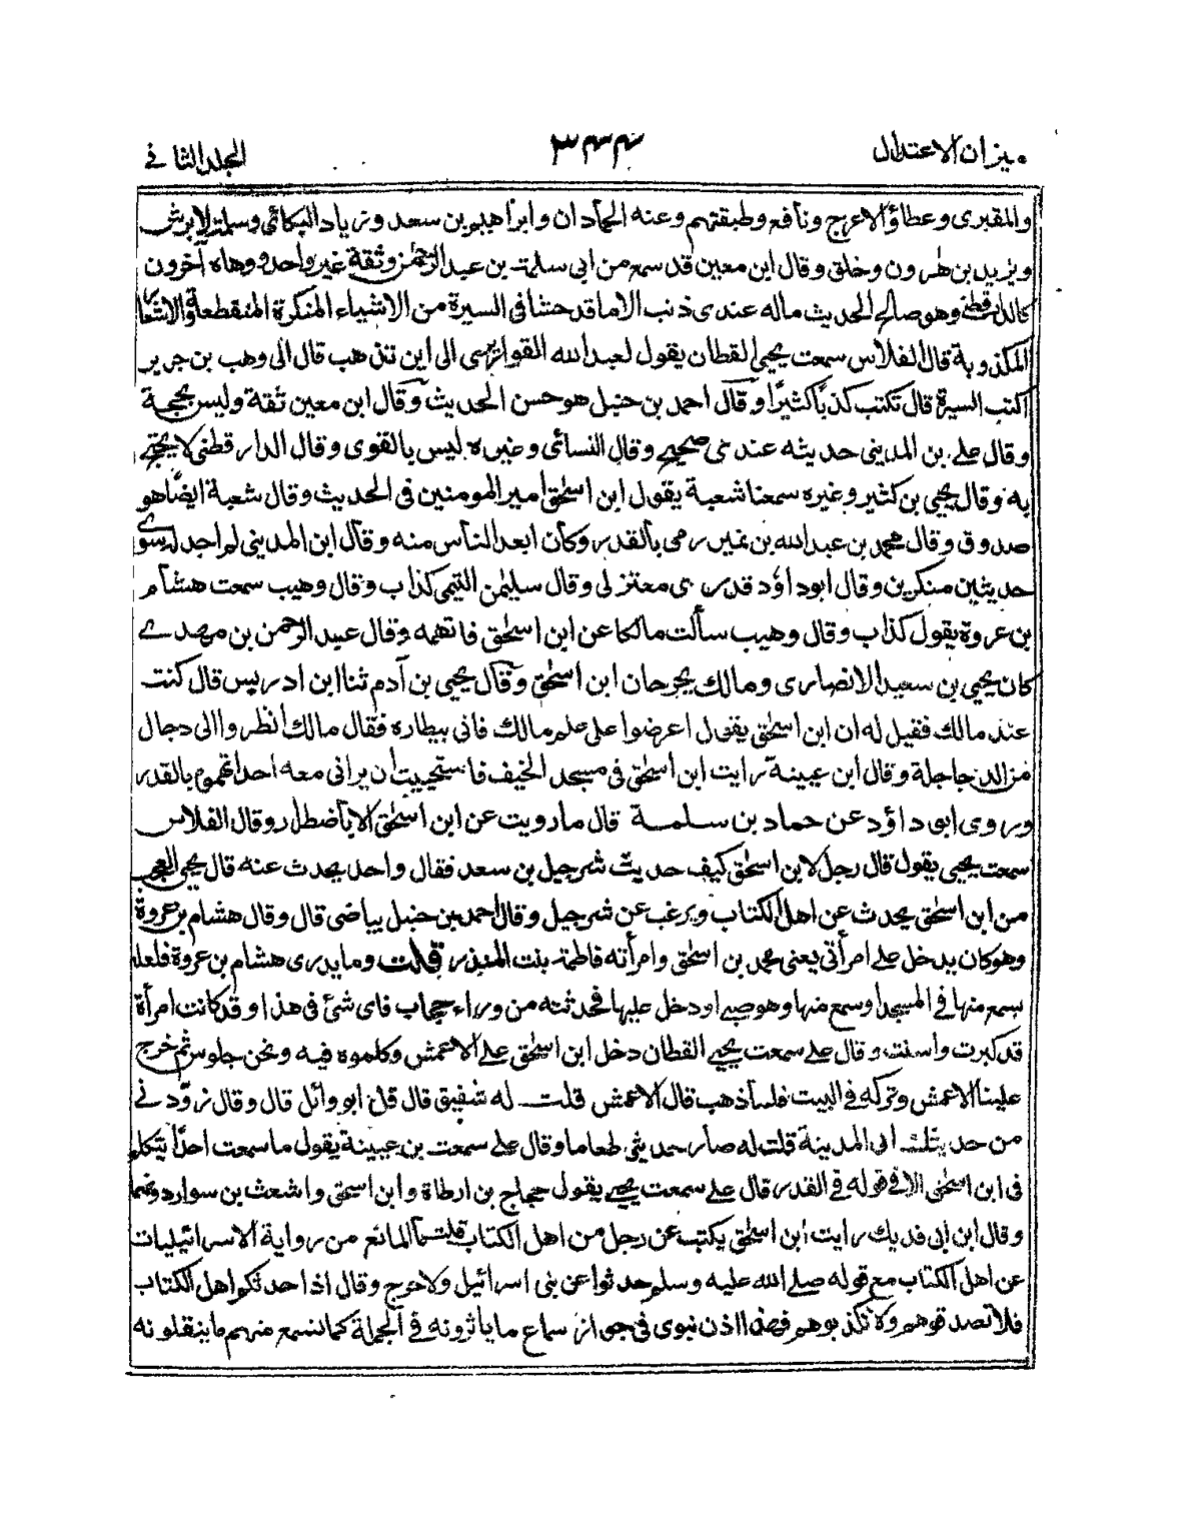 ميزان الاعتدال ٣٤٤ المجلد الثانی
والمقبری وعطاؤ الاعرج ونافع وطبقتهم وعنه الحمادان وابراهيم بن سعد وزياد البکائی وسلمة الابرش
ويزيد بن هرون وخلق وقال ابن معين قد سمع من ابی سلمة بن عبد الرحمٰن وثقة غير واحد ووهاه آخرون
کالدارقطنی وهو صالح الحديث ماله عندی ذنب الا ما قد حشا فی السيرة من الاشياء المنکرة المنقطعة والاشعار
المکذوبة قال الفلاس سمعت يحيیٰ القطان يقول لعبد الله القواريری الی اين تذهب قال الی وهب بن جرير
اکتب السيرة قال تکتب کذباً کثيرًا وقال احمد بن حنبل هو حسن الحديث وقال ابن معين ثقة وليس بحجة
وقال علی بن المدينی حديثه عندی صحيح وقال النسائی وغيره ليس بالقوی وقال الدارقطنی لا يحتج
به وقال يحيی بن کثير وغيره سمعنا شعبة يقول ابن اسحٰق امير المومنين فی الحديث وقال شعبة ايضًا هو
صدوق وقال محمد بن عبد الله بن نمير رمی بالقدر وکان ابعد الناس منه وقال ابن المدينی لم اجد له سوی
حديثين منکرين وقال ابو داؤد قدری معتزلی وقال سليمٰن التيمی کذاب وقال وهيب سمعت هشام
بن عروة يقول کذاب وقال وهيب سألت مالکا عن ابن اسحٰق فاتهمه وقال عبد الرحمٰن بن مهدی
کان يحيی بن سعيد الانصاری ومالک يجرحان ابن اسحٰق وقال يحيی بن آدم ثنا ابن ادريس قال کنت
عند مالک فقيل له ان ابن اسحٰق يقول اعرضوا علی علم مالک فانی بيطاره فقال مالک انظروا الی دجال
من الدجاجلة وقال ابن عيينة رايت ابن اسحٰق فی مسجد الخيف فاستحييت ان يرانی معه احد اتهموه بالقدر
وروی ابو داؤد عن حماد بن سلمة قال ما رويت عن ابن اسحٰق الا باضطرار وقال الفلاس
سمعت يحيی يقول قال رجل لابن اسحٰق کيف حديث شرحبيل بن سعد فقال واحد يحدث عنه قال يحيی العجب
من ابن اسحٰق يحدث عن اهل الکتاب ويرغب عن شرحبيل وقال احمد بن حنبل قال وقال هشام بن عروة
وهو کان يدخل علی امرأتی يعنی محمد بن اسحٰق وامرأته فاطمة بنت المنذر قلت وما يدری هشام بن عروة فلعله
سمع منها فی المسجد او سمع منها وهو صبی او دخل عليها فحدثته من وراء حجاب فای شئ فی هذا وقد کانت امرأة
قد کبرت واسنت وقال علی سمعت يحيی القطان دخل ابن اسحٰق علی الاعمش وکلموه فيه ونحن جلوس ثم خرج
علينا الاعمش وترکه فی البيت فلما ذهب قال الاعمش قلت له شقيق قال قل ابو وائل قال وقال زودنی
من حديثک الی المدينة قلت له صار حديثی طعاما وقال علی سمعت بن عيينة يقول ما سمعت احدًا يتکلم
فی ابن اسحٰق الا فی قوله فی القدر قال علی سمعت يحيی يقول حجاج بن ارطاة وابن اسحٰق واشعث بن سوار دونهما
وقال ابن ابی فديک رايت ابن اسحٰق يکتب عن رجل من اهل الکتاب قلت ما المانع من رواية الاسرائيليات
عن اهل الکتاب مع قوله صلی الله عليه وسلم حدثوا عن بنی اسرائيل ولا حرج وقال اذا حدثکم اهل الکتاب
فلا تصدقوهم ولا تکذبوهم فهذا اذن نبوی فی جواز سماع ما ياثرونه فی الجملة کما نسمع منهم ما ينقلونه